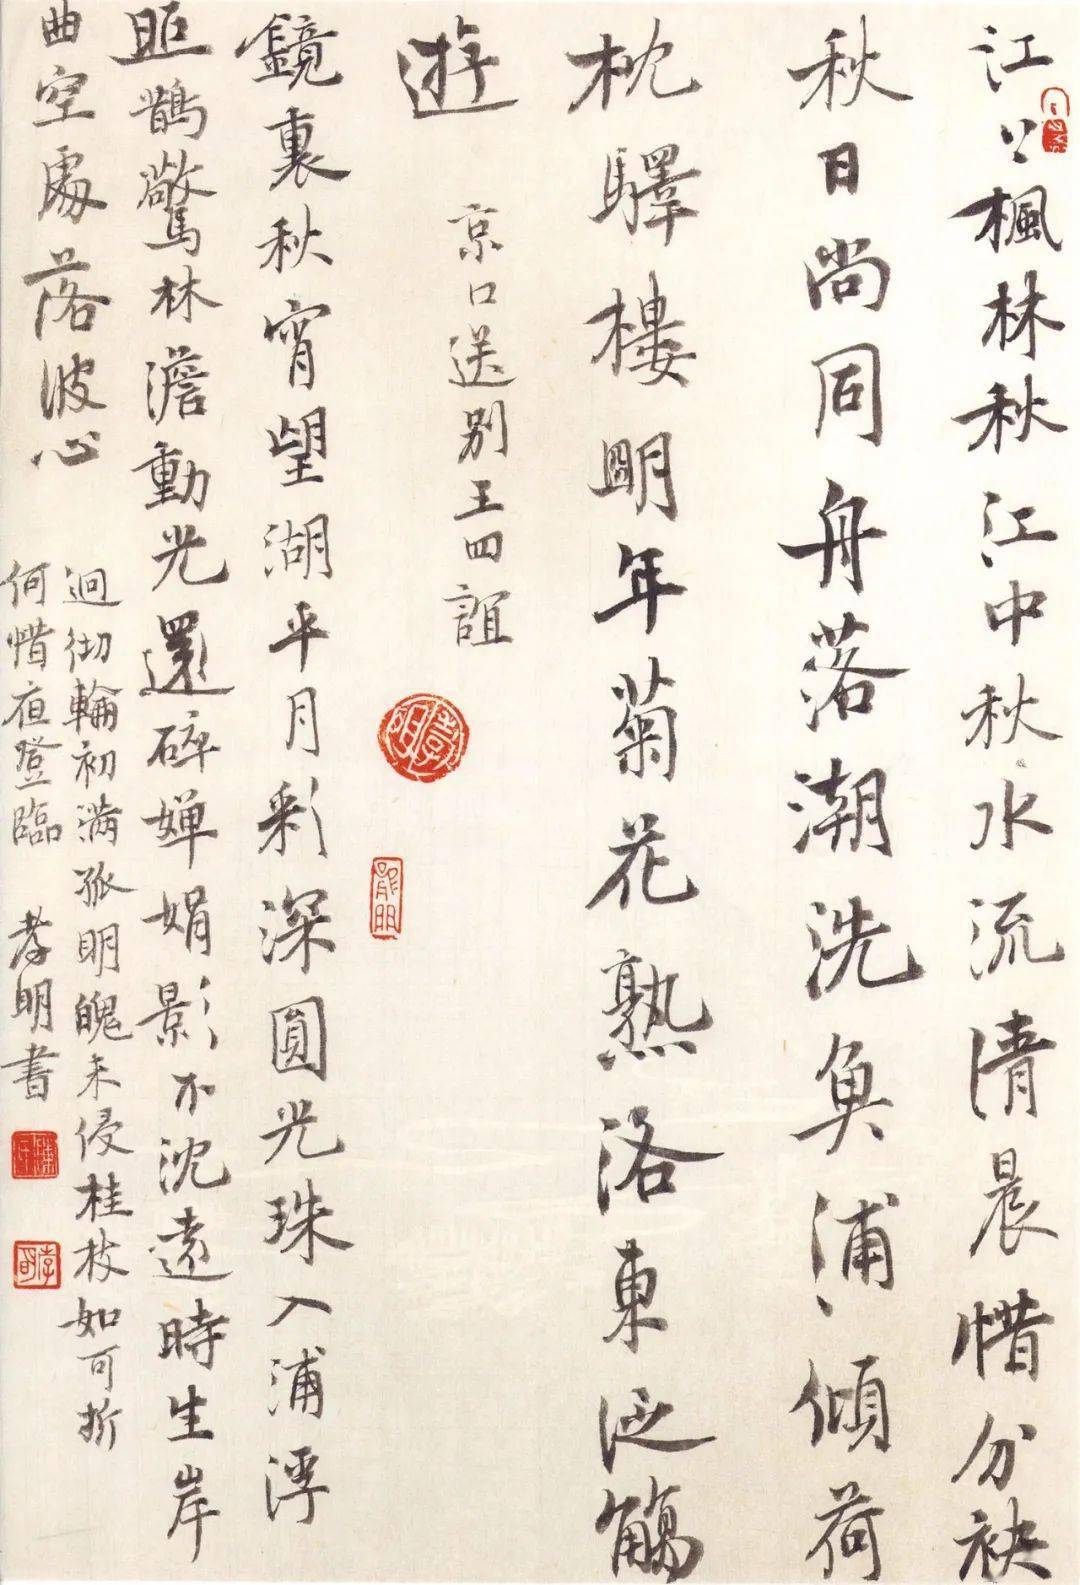 江上楓林秋秋江中秋水流清晨惜分袂
秋日尚同舟落潮洗魚浦傾荷
枕驛樓明年菊花熟洛東泛觴
遊
京口送別王四誼
鏡裏秋宵望湖平月彩深圓光珠入浦浮
照鵲驚林澹動光還碎嬋娟影不沈遠時生岸
曲空處落波心
迥徹輪初滿孤明魄未侵桂枝如可折
何惜夜登臨
孝明書